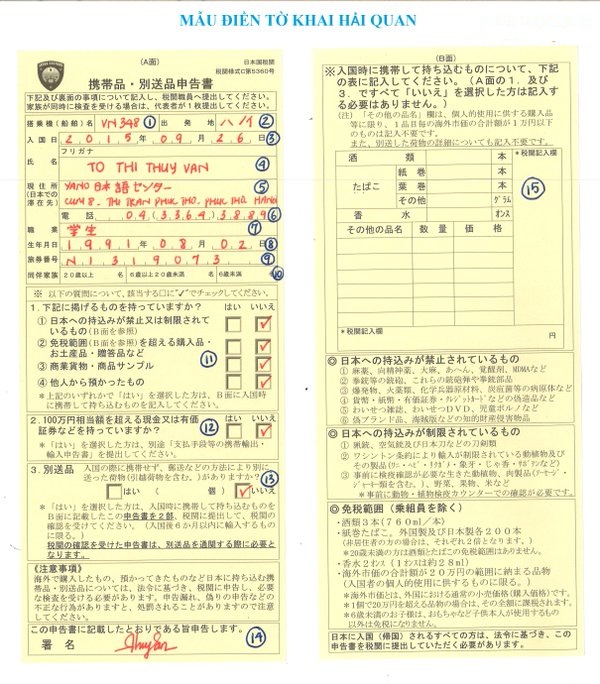 MẪU ĐIỀN TỜ KHAI HẢI QUAN
(A面)
日本国税関
税関様式C第5360号
携帯品・別送品申告書
下記及び裏面の事項について記入し、税関職員へ提出してください。
家族が同時に検査を受ける場合は、代表者が1枚提出してください。
搭乗機(船舶)名 VN348 ① 出発地 ハノイ ②
入国日 2015年09月26日 ③
フリガナ
氏名 TO THI THUY VAN ④
現住所(日本での滞在先) YANO日本語センター ⑤
CUM 8. THI TRAN PHUC THO. PHUC THO. HANOI
電話 04(3364)3889 ⑥
職業 学生 ⑦
生年月日 1991年08月02日 ⑧
旅券番号 N1319073 ⑨
同伴家族 20歳以上 名 6歳以上20歳未満 名 6歳未満 名 ⑩
※ 以下の質問について、該当する□に"✓"でチェックしてください。
1.下記に掲げるものを持っていますか? はい いいえ
① 日本への持込みが禁止又は制限されているもの(B面を参照)
② 免税範囲(B面を参照)を超える購入品・お土産品・贈答品など
③ 商業貨物・商品サンプル ⑪
④ 他人から預かったもの
*上記のいずれかで「はい」を選択した方は、B面に入国時に携帯して持ち込むものを記入してください。
2.100万円相当額を超える現金又は有価証券などを持っていますか? ⑫ はい いいえ
*「はい」を選択した方は、別途「支払手段等の携帯輸出・輸入申告書」を提出してください。
3.別送品 入国の際に携帯せず、郵送などの方法により別に送った荷物(引越荷物を含む。)がありますか? ⑬
はい ( 個) いいえ
*「はい」を選択した方は、入国時に携帯して持ち込むものをB面に記入したこの申告書を2部、税関に提出して、税関の確認を受けてください。(入国後6か月以内に輸入するものに限る。)
税関の確認を受けた申告書は、別送品を通関する際に必要となります。
《注意事項》
海外で購入したもの、預かってきたものなど日本に持ち込む携帯品・別送品については、法令に基づき、税関に申告し、必要な検査を受ける必要があります。申告漏れ、偽りの申告などの不正な行為がありますと、処罰されることがありますので注意してください。
この申告書に記載したとおりである旨申告します。
署名 ⑭
(B面)
※入国時に携帯して持ち込むものについて、下記の表に記入してください。(A面の1.及び3.ですべて「いいえ」を選択した方は記入する必要はありません。)
(注)「その他の品名」欄は、個人的使用に供する購入品等に限り、1品目毎の海外市価の合計額が1万円以下のものは記入不要です。
また、別送した荷物の詳細についても記入不要です。
酒類 本 *税関記入欄
たばこ 紙巻 本
葉巻 本
その他 グラム ⑮
香水 オンス
その他の品名 数量 価格
*税関記入欄
円
◎ 日本への持込みが禁止されているもの
① 麻薬、向精神薬、大麻、あへん、覚醒剤、MDMAなど
② 拳銃等の銃砲、これらの銃砲弾や拳銃部品
③ 爆発物、火薬類、化学兵器原材料、炭疽菌等の病原体など
④ 貨幣・紙幣・有価証券・クレジットカードなどの偽造品など
⑤ わいせつ雑誌、わいせつDVD、児童ポルノなど
⑥ 偽ブランド品、海賊版などの知的財産侵害物品
◎ 日本への持込みが制限されているもの
① 猟銃、空気銃及び日本刀などの刀剣類
② ワシントン条約により輸入が制限されている動植物及びその製品(ワニ・ヘビ・リクガメ・象牙・じゃ香・サボテンなど)
③ 事前に検疫確認が必要な生きた動植物、肉製品(ソーセージ・ジャーキー類を含む。)、野菜、果物、米など
*事前に動物・植物検疫カウンターでの確認が必要です。
◎ 免税範囲(乗組員を除く)
・酒類3本(760ml/本)
・紙巻たばこ。外国製及び日本製各200本
(非居住者の方の場合は、それぞれ2倍となります。)
*20歳未満の方は酒類とたばこの免税範囲はありません。
・香水2オンス(1オンスは約28ml)
・海外市価の合計額が20万円の範囲に納まる品物
(入国者の個人的使用に供するものに限る。)
*海外市価とは、外国における通常の小売価格(購入価格)です。
*1個で20万円を超える品物の場合は、その全額に課税されます。
*6歳未満のお子様は、おもちゃなど子供本人が使用するもの以外は免税になりません。
日本に入国(帰国)されるすべての方は、法令に基づき、この申告書を税関に提出していただく必要があります。